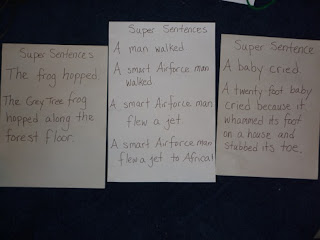 Super Sentences
The frog hopped.
The Grey Tree frog
hopped along the
forest floor.
Super Sentences
A man walked.
A smart Airforce man
walked.
A smart Airforce man
flew a jet.
A smart Airforce man
flew a jet to Africa!
Super Sentence
A baby cried.
A twenty foot baby
cried because it
whammed its foot
on a house and
stubbed its toe.